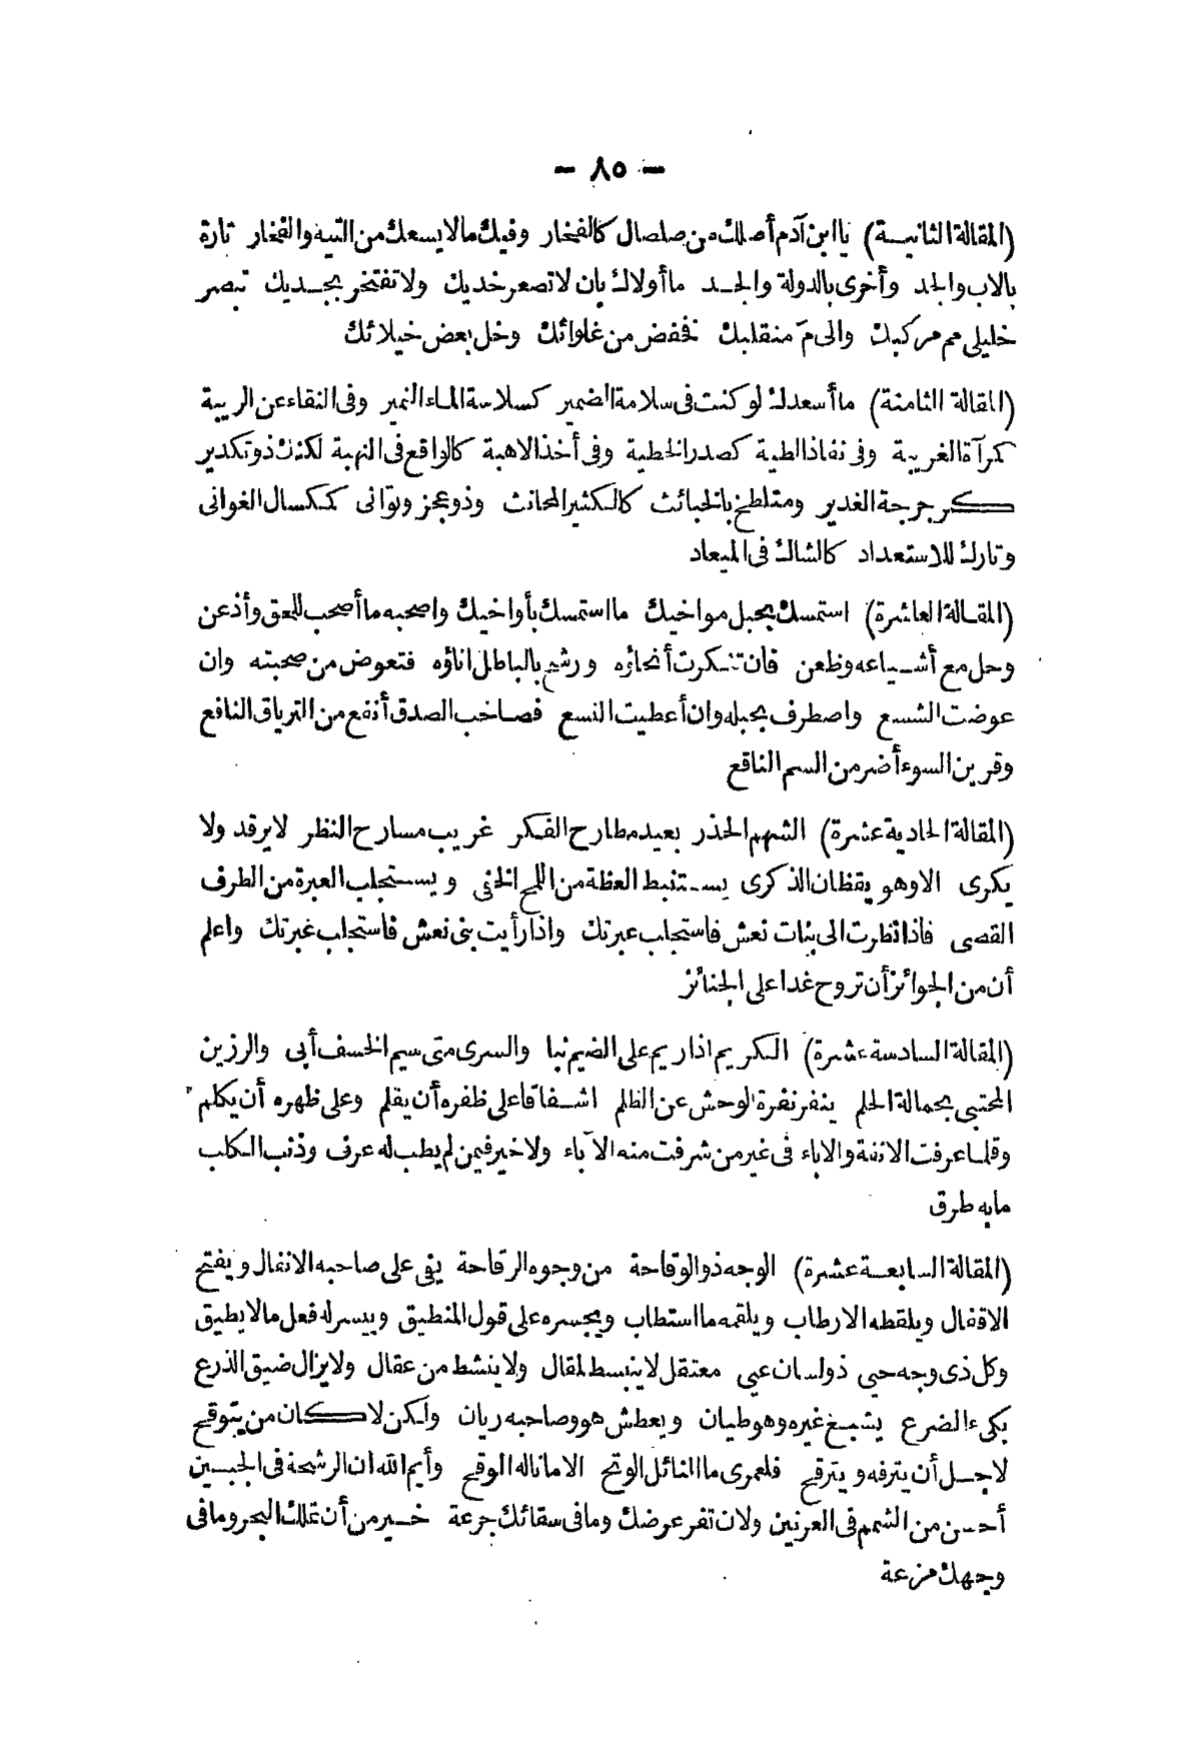 — ٨٥ —
(المقالة الثانية) يا ابن آدم أصلك من صلصال كالفخار وفيك مالا يسعك من التيه والفخار تارة
بالاب والجد وأخرى بالدولة والجد ما أولاك بان لا تصعر خديك ولا تفتخر بجديك تبصر
خليلى مم مركبك والى مَ منقلبك نفخض من غلوائك وخل بعض خيلائك
(المقالة الثامنة) ما أسعدك لو كنت فى سلامة الضمير كسلاسة الماء النمير وفى النقاء عن الريبة
كمرآة الغريبة وفى نفاذ الطية كصدر الخطية وفى أخذ الاهبة كالواقع فى النهبة لكنك ذو تكدير
كرجرجة الغدير ومتلطخ بالخبائث كالكثير المحانث وذو عجز وتوانى ككسال الغوانى
وتارك للاستعداد كالشاك فى الميعاد
(المقالة العاشرة) استمسك بحبل مواخيك ما استمسك بأواخيك واصحبه ما أصحب للحق وأذعن
وحل مع أشياعه وظعن فان تنكرت أنحاؤه ورشح بالباطل اناؤه فتعوض من صحبته وان
عوضت الشسع واصطرف بحبله وان أعطيت النسع فصاحب الصدق أنفع من الترياق النافع
وقرين السوء أضر من السم الناقع
(المقالة الحادية عشرة) الشهم الحذر بعيد مطارح الفكر غريب مسارح النظر لا يرقد ولا
يكرى الا وهو يقظان الذكرى يستنبط العظة من اللمح الخفى ويستجلب العبرة من الطرف
القصى فاذا نظرت الى بنات نعش فاستجلب عبرتك واذا رأيت بنى نعش فاستجلب عبرتك واعلم
أن من الجوائز أن تروح غدا على الجنائز
(المقالة السادسة عشرة) الكريم اذا ريم على الضيم نبا والسرى متى سيم الخسف أبى والرزين
المحتبى بحمالة الحلم ينفر نفرة الوحش عن الظلم اشفاقا على ظفره أن يقلم وعلى ظهره أن يكلم
وقلما عرفت الانفة والاباء فى غير من شرفت منه الآباء ولا خير فيمن لم يطب له عرق وذنب الكلب
ما به طرق
(المقالة السابعة عشرة) الوجه ذو الوقاحة من وجوه الرقاحة يفى على صاحبه الانفال ويفتح
الاقفال ويلقطه الارطاب ويلقمه ما استطاب ويجسره على قول المنطيق وييسر له فعل مالا يطيق
وكل ذى وجه حيى ذو لسان عيى معتقل لا ينبسط لمقال ولا ينشط من عقال ولا يزال ضيق الذرع
بكىء الضرع يشبع غيره وهو طيان ويعطش هو وصاحبه ريان ولكن لا كان من يتوقح
لاجل أن يترفه ويترقح فلعمرى ما النائل الوتح الا ما ناله الوقح وأيم الله ان الرشحة فى الجبين
أحسن من الشمم فى العرنين ولان تفر عرضك وما فى سقائك جرعة خير من أن تملك البحر وما فى
وجهك مزعة